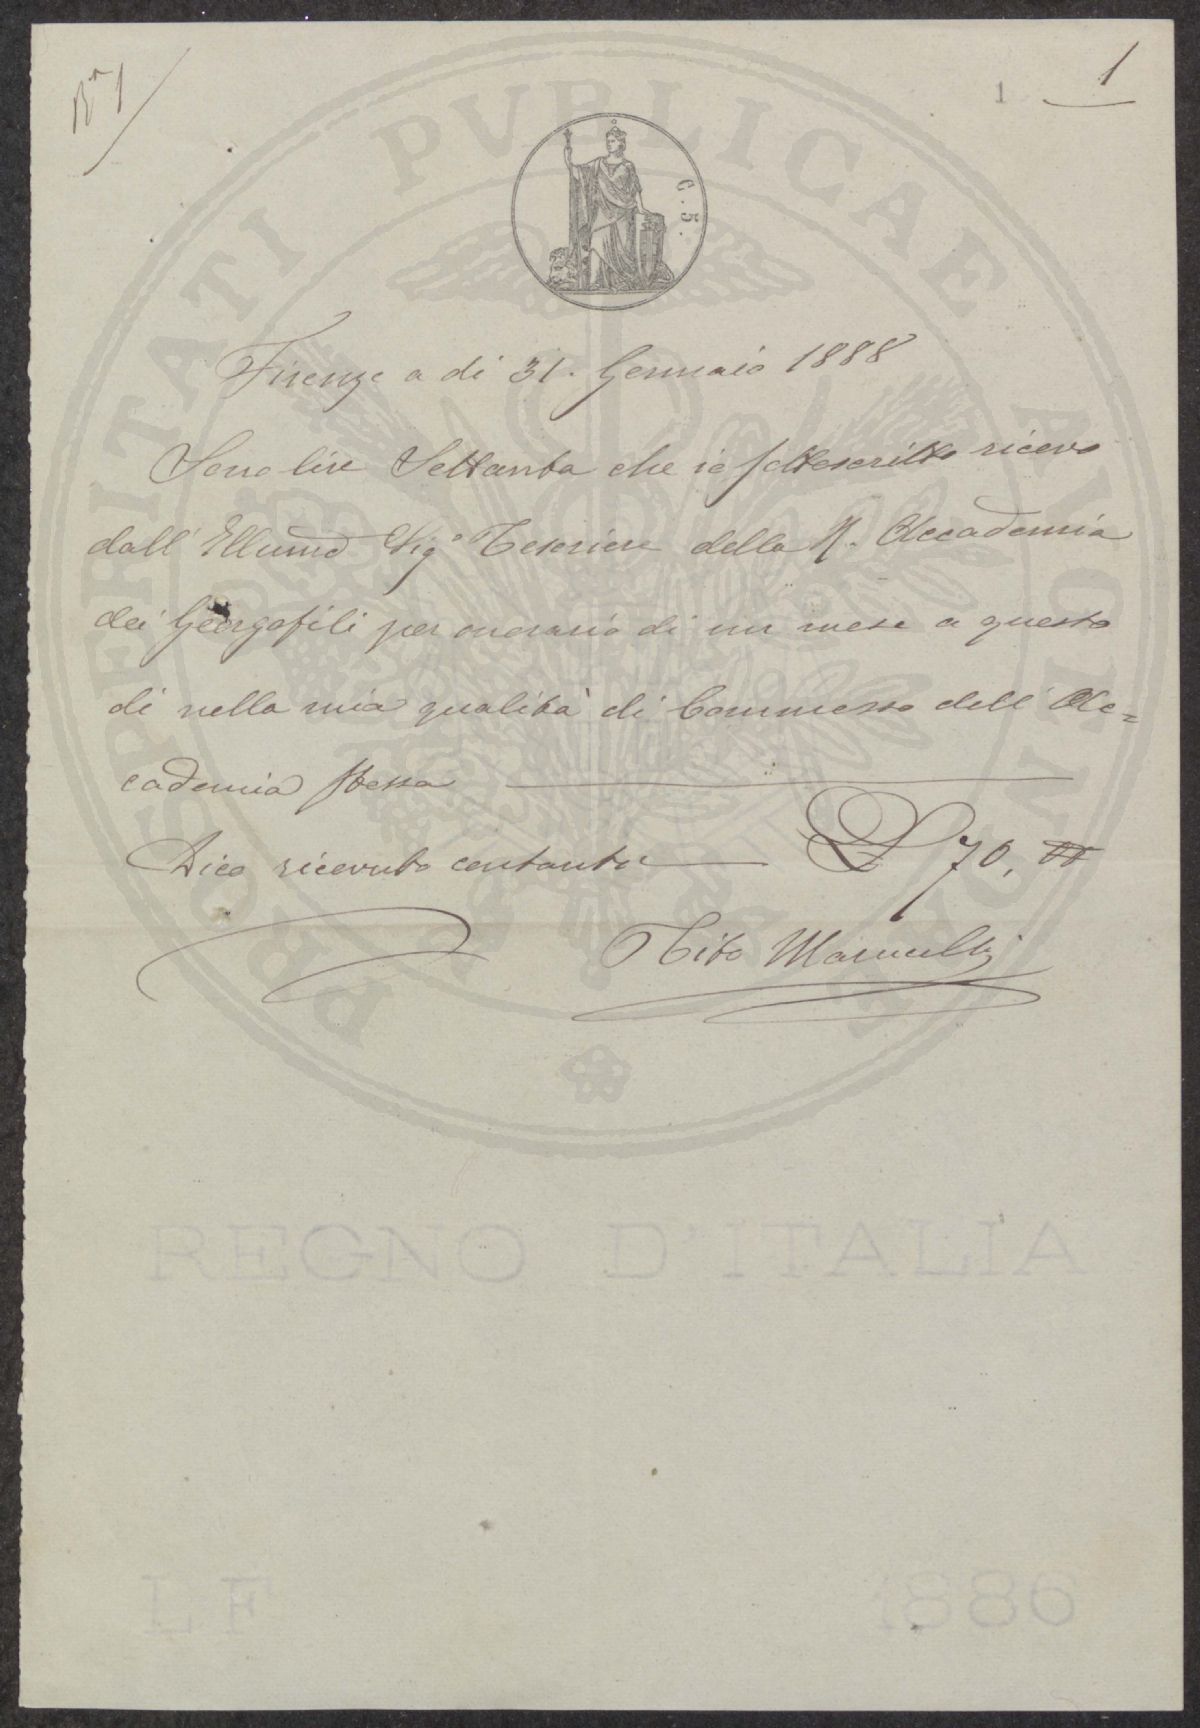 1
1
C. 5.
PROSPERITATI PVBLICAE
Firenze a di 31. Gennaio 1888
Sono lire Settanta che io sottoscritto ricevo
dall' Illumo Sigr Tesoriere della R. Accademia
dei Georgofili per onorario di un mese a questo
dì nella mia qualità di Commesso dell' Ac=
cademia stessa
Dico ricevute contante L 70, 00
Tito
REGNO D'ITALIA
L F 1886